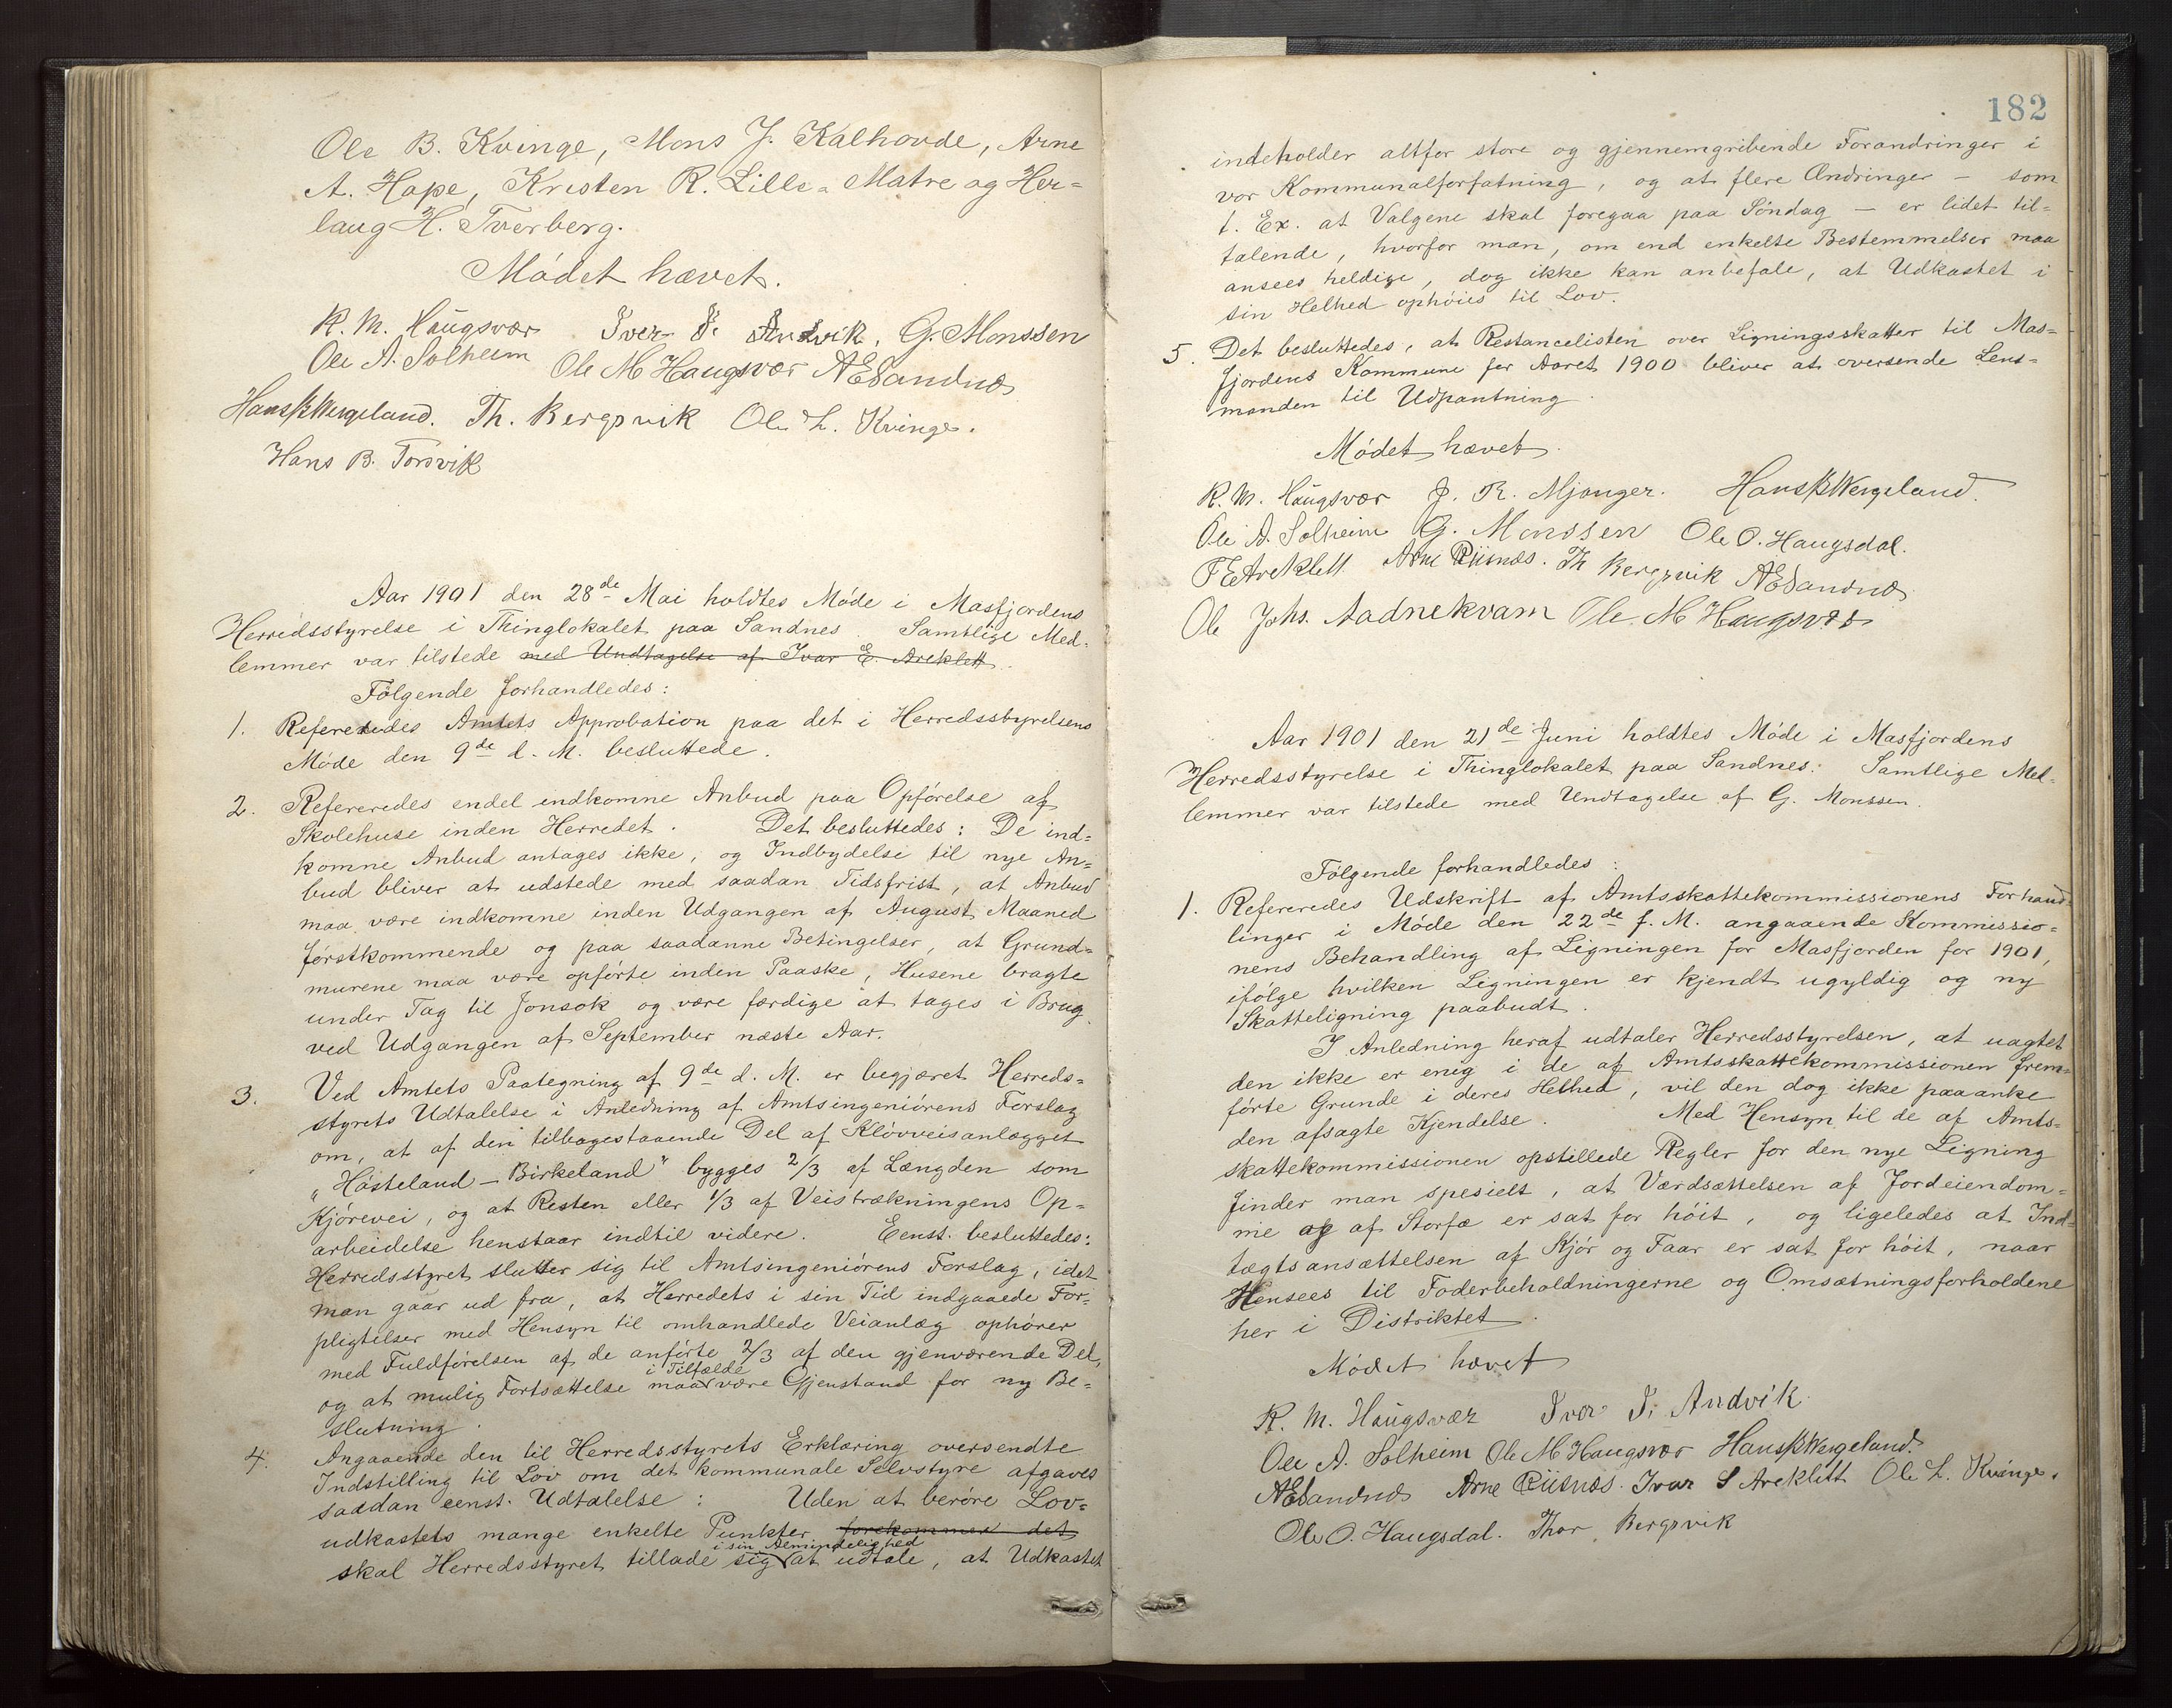 Ole B. Kvinge, Mons J. Kalhovde, Arne
A. Hope, Kristen R. Lille-Matre og Her=
laug H. Tverberg.
Mödet hævet.
R. M. Haugsvær Iver I. Andvik, G. Monssen
Ole A. Solheim Ole M Haugsvær AESandnæs
Hans B Wergeland. Th. Bergsvik Ole L. Kvinge.
Hans B. Torsvik
Aar 1901 den 28de Mai holdtes Möde i Masfjordens
Herredsstyrelse i Thinglokalet paa Sandnes. Samtlige Med-
lemmer var tilstede med Undtagelse af Ivar E. Areklett.
Fölgende forhandledes:
1. Refereredes Amtets Approbation paa det i Herredsstyrelsens
Möde den 9de d. M. besluttede.
2. Refereredes endel indkomne Anbud paa Opförelse af
Skolehuse inden Herredet. Det besluttedes: De ind=
komne Anbud antages ikke, og Indbydelse til nye An=
bud bliver at udstede med saadan Tidsfrist, at Anbud
maa være indkomne inden Udgangen af August Maaned
förstkommende og paa saadanne Betingelser, at Grund=
murene maa være opförte inden Paaske, Husene bragte
under Tag til Jonsok og være færdige at tages i Brug
ved Udgangen af September næste Aar.
3. Ved Amtets Paategning af 9de d. M. er begjæret Herreds=
styrets Udtalelse i Anledning af Amtsingeniörens Forslag
om, at af den tilbagestaaende Del af Klövveisanlægget
"Hösteland – Birkeland" bygges 2/3 af Længden som
Kjörevei, og at Resten eller 1/3 af Veistrækningens Op=
arbeidelse henstaar indtil videre. Eenst. besluttedes:
Herredsstyret slutter sig til Amtsingeniörens Forslag, idet
man gaar ud fra, at Herredets i sin Tid indgaaede For=
pligtelser med Hensyn til omhandlede Veianlæg ophörer
med Fuldförelsen af de anförte 2/3 af den gjenværende Del,
i Tilfælde
og at mulig Fortsættelse maa være Gjenstand for ny Be=
slutning.
4. Angaaende den til Herredsstyrets Erklæring oversendte
Indstilling til Lov om det kommunale Selvstyre afgaves
saadan eenst. Udtalelse: Uden at beröre Lov=
udkastets mange enkelte Punkter forekommer det
i sin Almindelighed
skal Herredsstyret tillade sig at udtale, at Udkastet
182
indeholder altfor store og gjennemgribende Forandringer i
vor Kommunalforfatning, og at flere Ændringer – som
t. Ex. at Valgene skal foregaa paa Söndag – er lidet til=
talende, hvorfor man, om end enkelte Bestemmelser maa
ansees heldige, dog ikke kan anbefale, at Udkastet i
sin Helhed ophöies til Lov.
5. Det besluttedes, at Restancelisten over Ligningsskatter til Mas=
fjordens Kommune for Aaret 1900 bliver at oversende Lens=
manden til Udpantning.
Mödet hævet.
R. M. Haugsvær J. R. Mjanger. Hans B Wergeland.
Ole A. Solheim G. Monssen Ole O. Haugsdal.
I E Areklett Arne Riisnæs. Th Bergsvik AESandnæs
Ole Johs. Aadnekvam Ole M Haugsvær
Aar 1901 den 21de Juni holdtes Möde i Masfjordens
Herredsstyrelse i Thinglokalet paa Sandnes. Samtlige Med-
lemmer var tilstede med Undtagelse af G. Monssen.
Fölgende forhandledes:
1. Refereredes Udskrift af Amtsskattekommissionens Forhand=
linger i Möde den 22de f. M. angaaende Kommissio=
nens Behandling af Ligningen for Masfjorden for 1901,
ifölge hvilken Ligningen er kjendt ugyldig og ny
Skatteligning paabudt.
I Anledning heraf udtaler Herredsstyrelsen, at uagtet
den ikke er enig i de af Amtsskattekommissionen frem=
förte Grunde i deres Helhed, vil den dog ikke paaanke
den afsagte Kjendelse. Med Hensyn til de af Amts=
skattekommissionen opstillede Regler for den nye Ligning
finder man spesielt, at Værdsættelsen af Jordeiendom=
me og af Storfæ er sat for höit, og ligeledes at Ind=
tægtsansættelsen af Kjör og Faar er sat for höit, naar
Hensees til Foderbeholdningerne og Omsætningsforholdene
her i Distriktet.
Mödet hævet
R. M. Haugsvær Iver I. Andvik
Ole A. Solheim Ole M Haugsvær Hans B Wergeland.
AESandnæs Arne Riisnæs. Ivar E Areklett Ole L. Kvinge.
Ole O. Haugsdal. Thor Bergsvik